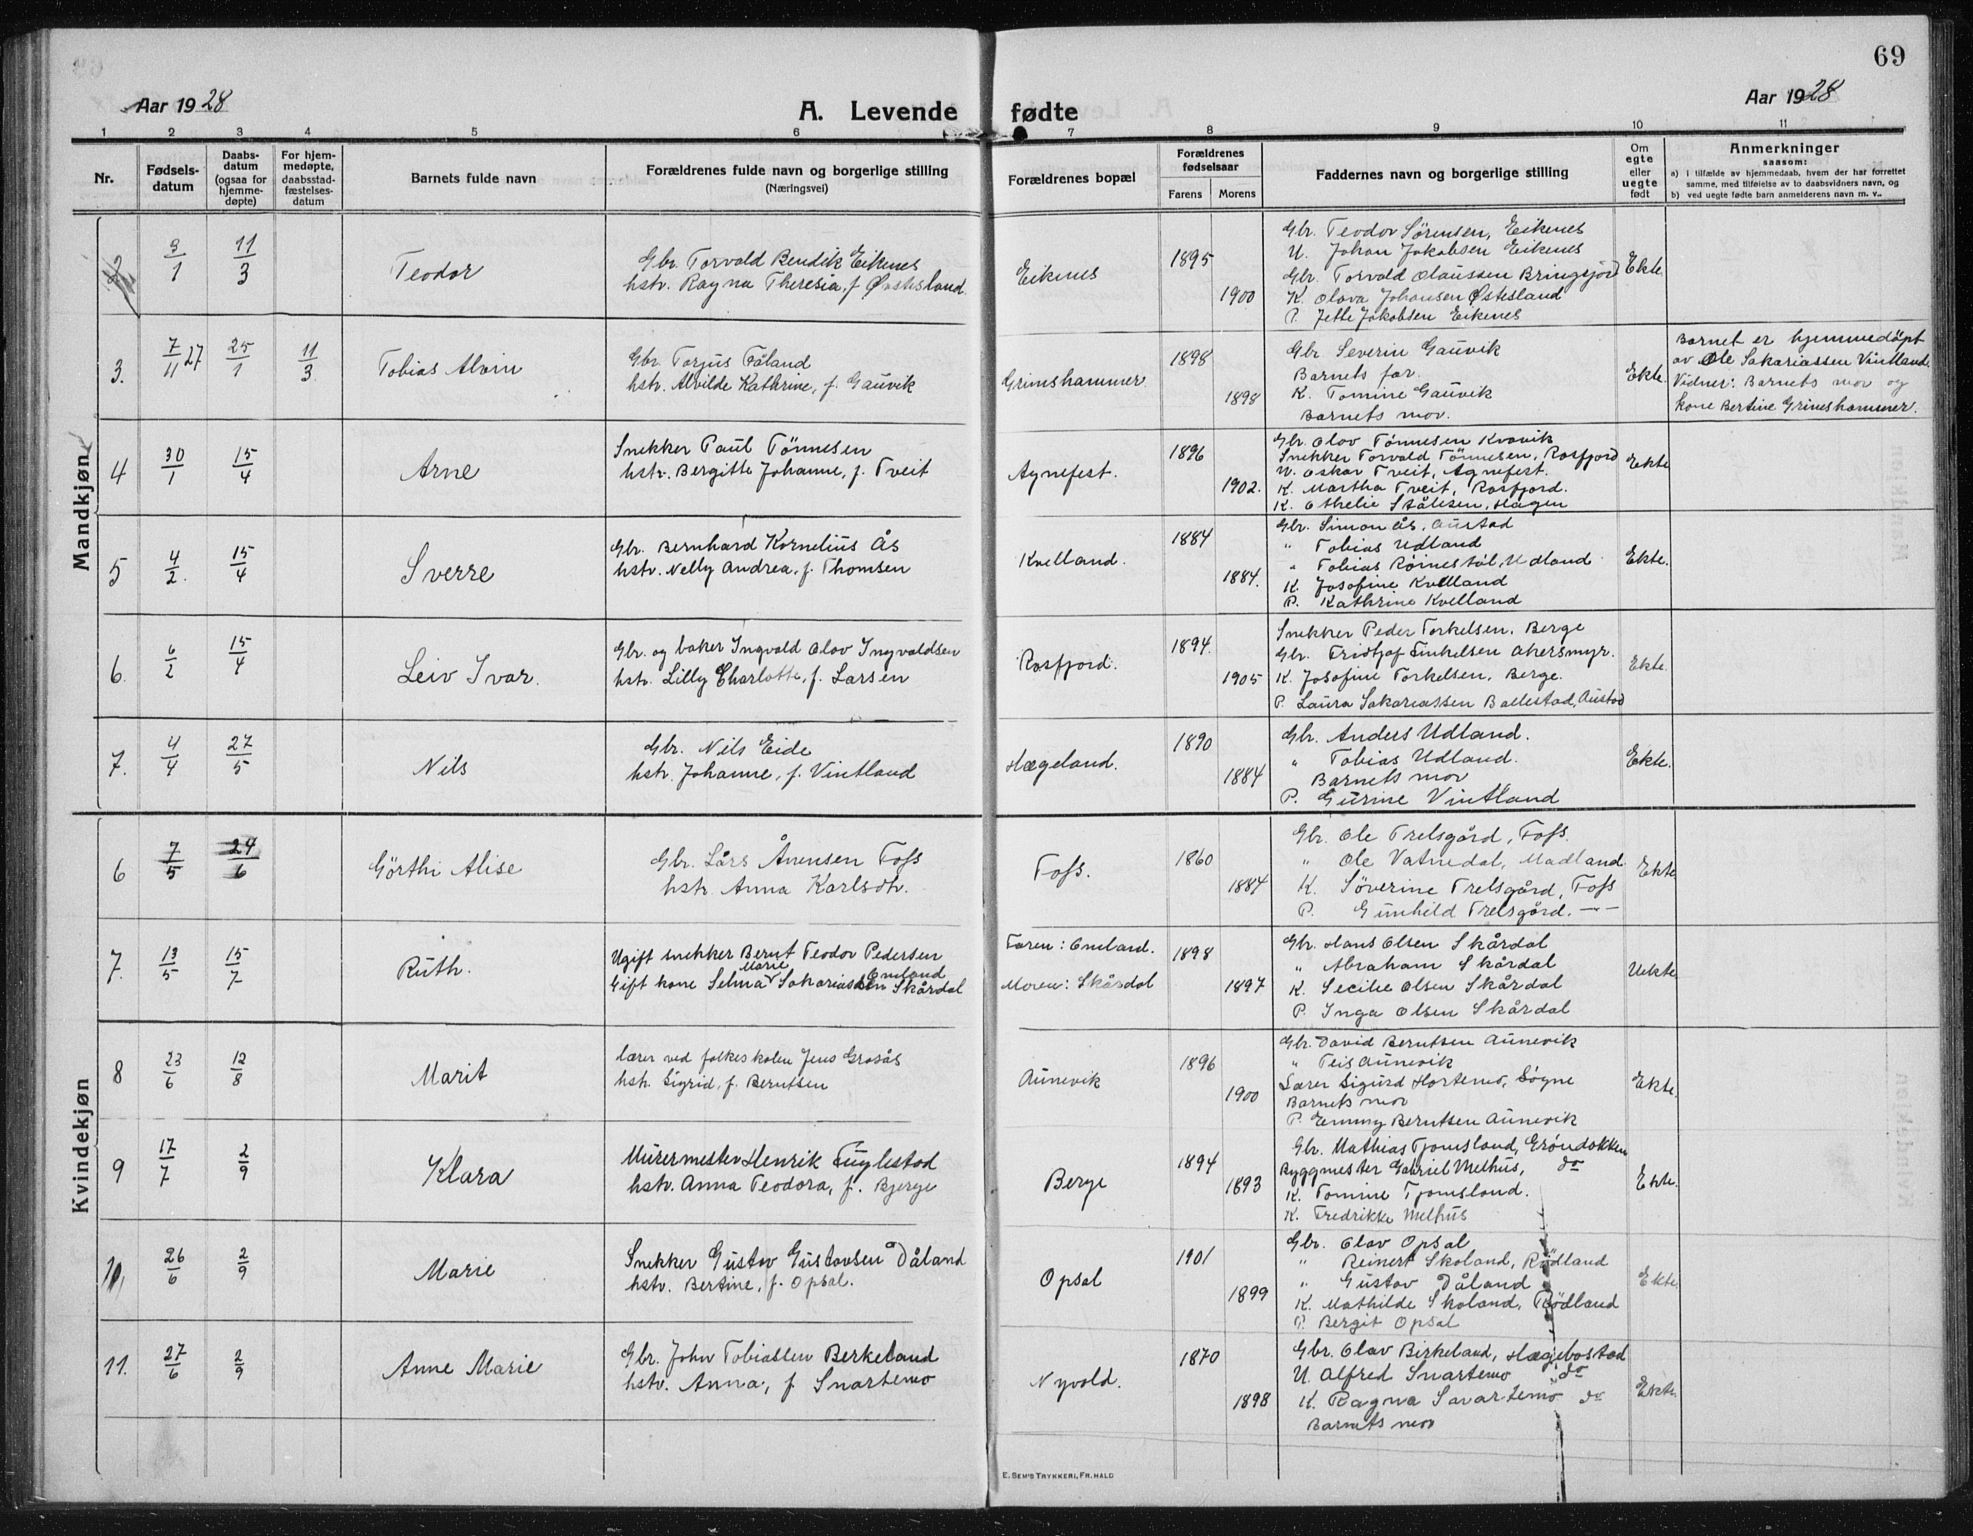 69
Aar 1928
A. Levende fødte
Aar 1928
1 2 3 4 5 6 7 8 9 10 11
Nr.
Fødsels-
datum
Daabs-
datum
(ogsaa for
hjemme-
døpte)
For hjem-
medøpte,
daabsstad-
fæstelses-
datum
Barnets fulde navn
Forældrenes fulde navn og borgerlige stilling
(Næringsvei)
Forældrenes bopæl
Forældrenes
fødselsaar
Farens Morens
Faddernes navn og borgerlige stilling
Om
egte
eller
uegte
født
Anmerkninger
saasom:
a) i tilfælde av hjemmedaab, hvem der har forrettet
samme, med tilføielse av to daabsvidners navn, og
b) ved uegte fødte barn anmelderens navn m. v..
Mandkjøn
2
9/1
11/3
Teodor
Gbr. Torvald Bendik Eikenes
hstr. Ragna Theresia, f. Østesland
Eikenes
1895
1900
Gbr. Teodor Sørensen, Eikenes
U. Johan Jakobsen Eikenes
Gbr. Torvald Olaussen Bringsjord
K. Olava Johansen Østesland
P. Jette Jakobsen Eikenes
Ekte.
3.
7/11 27
25/1
11/3
Tobias Alvin
Gbr. Torjus Fåland
hstr. Alvilde Kathrine, f. Gauvik
Grimshammer
1898
1898
Gbr Severin Gauvik
Barnets far.
K. Tomine Gauvik
Barnets mor.
Ekte.
Barnet er hjemmedöpt
av Ole Sakariassen Vintland.
Vidner: Barnets mor og
kone Bertine Grimshammer.
4
30/1
15/4
Arne
Snekker Paul Tönnesen
hstr. Bergitte Johanne, f. Tveit
Agnefest.
1896
1902.
Gbr. Olov Tönnesen Kvavik
Snekker Torvald Tönnesen, Rosfjord
U. Oskar Tveit, Agnefest.
K. Martha Tveit, Rosfjord.
K. Othelie Stålesen, Hagen
Ekte.
5
4/2.
15/4
Sverre
Gbr. Bernhard Kornelius Ås
hstr. Nelly Andrea, f. Thomsen
Kvelland.
1884
1884.
Gbr. Simon Ås, Austad
" Tobias Udland
" Tobias Röinestöl, Udland
K. Josefine Kvelland
P. Kathrine Kvelland
Ekte.
6.
6/2
15/4
Leiv Ivar.
Gbr. og baker Ingvald Olav Ingvaldsen
hstr. Lilly Charlotte, f. Larsen
Rosfjord.
1894.
1905
Snekker Peder Torkelsen, Berge
Gbr. Fridtjof Torkelsen Akersmyr.
K. Josefine Torkelsen, Berge.
P. Laura Sakariassen Ballestad, Austad
Ekte.
7.
4/4
27/5
Nils
Gbr. Nils Eide
hstr. Johanne, f. Vintland
Hægeland.
1890
1884
Gbr. Anders Udland.
" Tobias Udland.
Barnets mor
P. Gurine Vintland
Ekte.
Kvindekjøn
6
7/5
24/6
Görthi Alise
Gbr. Lårs Ånensen Foss
hstr. Anna Karlsdtr.
Foss.
1860
1884
Gbr. Ole Trelsgård, Foss.
" Ole Vatnedal, Madland.
K. Söverine Trelsgård, Foss
P. Gunhild Trelsgård. —
Ekte
7.
13/5
15/7
Ruth.
Ugift snekker Bernt Teodor Pedersen Omland
Gift kone Selma Marie Sakariassen Skårdal
Faren: Omland.
Moren: Skårdal
1898
1897
Gbr. Hans Olsen Skårdal
" Abraham Skårdal
K. Secilie Olsen Skårdal
P. Inga Olsen Skårdal
Uekte
8
23/6
12/8
Marit
Lærer ved folkeskolen Jens Grosås
hstr. Sigrid, f. Berntsen
Aunevik
1896
1900
Gbr. David Berntsen Aunevik
" Teis Aunevik
Lærer Sigurd Hortemo, Søgne
Barnets mor
P. Emmy Berntsen Aunevik
Ekte.
9
17/7
2/9
Klara
Murermester Henrik Fuglestad
hstr. Anna Teodora, f. Bjerge
Berge
1894
1893
Gbr. Mathias Tjomsland, Gröndokken
Byggmester Gabriel Melhus, do
K. Tomine Tjomsland.
K. Fredrikke Melhus
Ekte.
10,
26/6
2/9
Marie
Snekker Gustav Gustavsen Dåland
hstr. Bertine, f. Opsal.
Opsal
1901
1899
Gbr. Olav Opsal
" Reinert Skoland, Rödland
" Gustav Dåland
K. Mathilde Skoland, Rödland
P. Bergit Opsal
Ekte.
11.
27/6
2/9
Anne Marie
Gbr. John Tobiassen Berkeland
hstr. Anna, f. Snartemo
Nyvold.
1870
1898
Gbr. Olav Birkeland, Hægebostad
U. Alfred Snartemo do
K. Ragna Snartemo do
Barnets mor
Ekte.
E. SEM'S TRYKKERI, FR.HALD